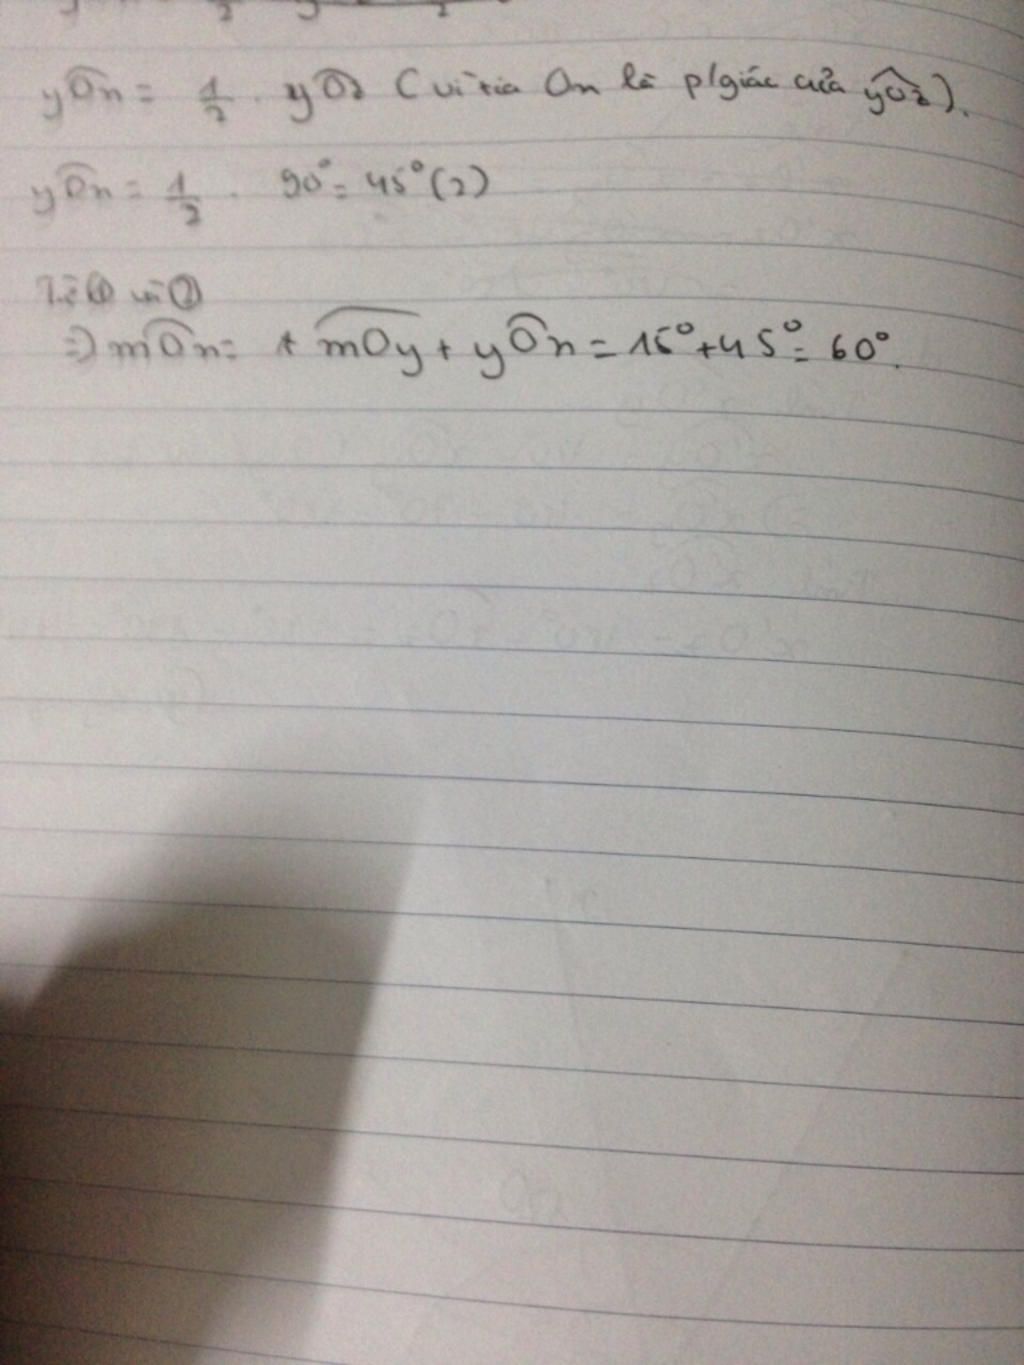 yOn = 1/2 . yOz (vì tia On là p/giác của yOz).
yOn = 1/2 . 90° = 45° (2)
Từ ① và ②
=) mOn = + mOy + yOn = 15° + 45° = 60°.